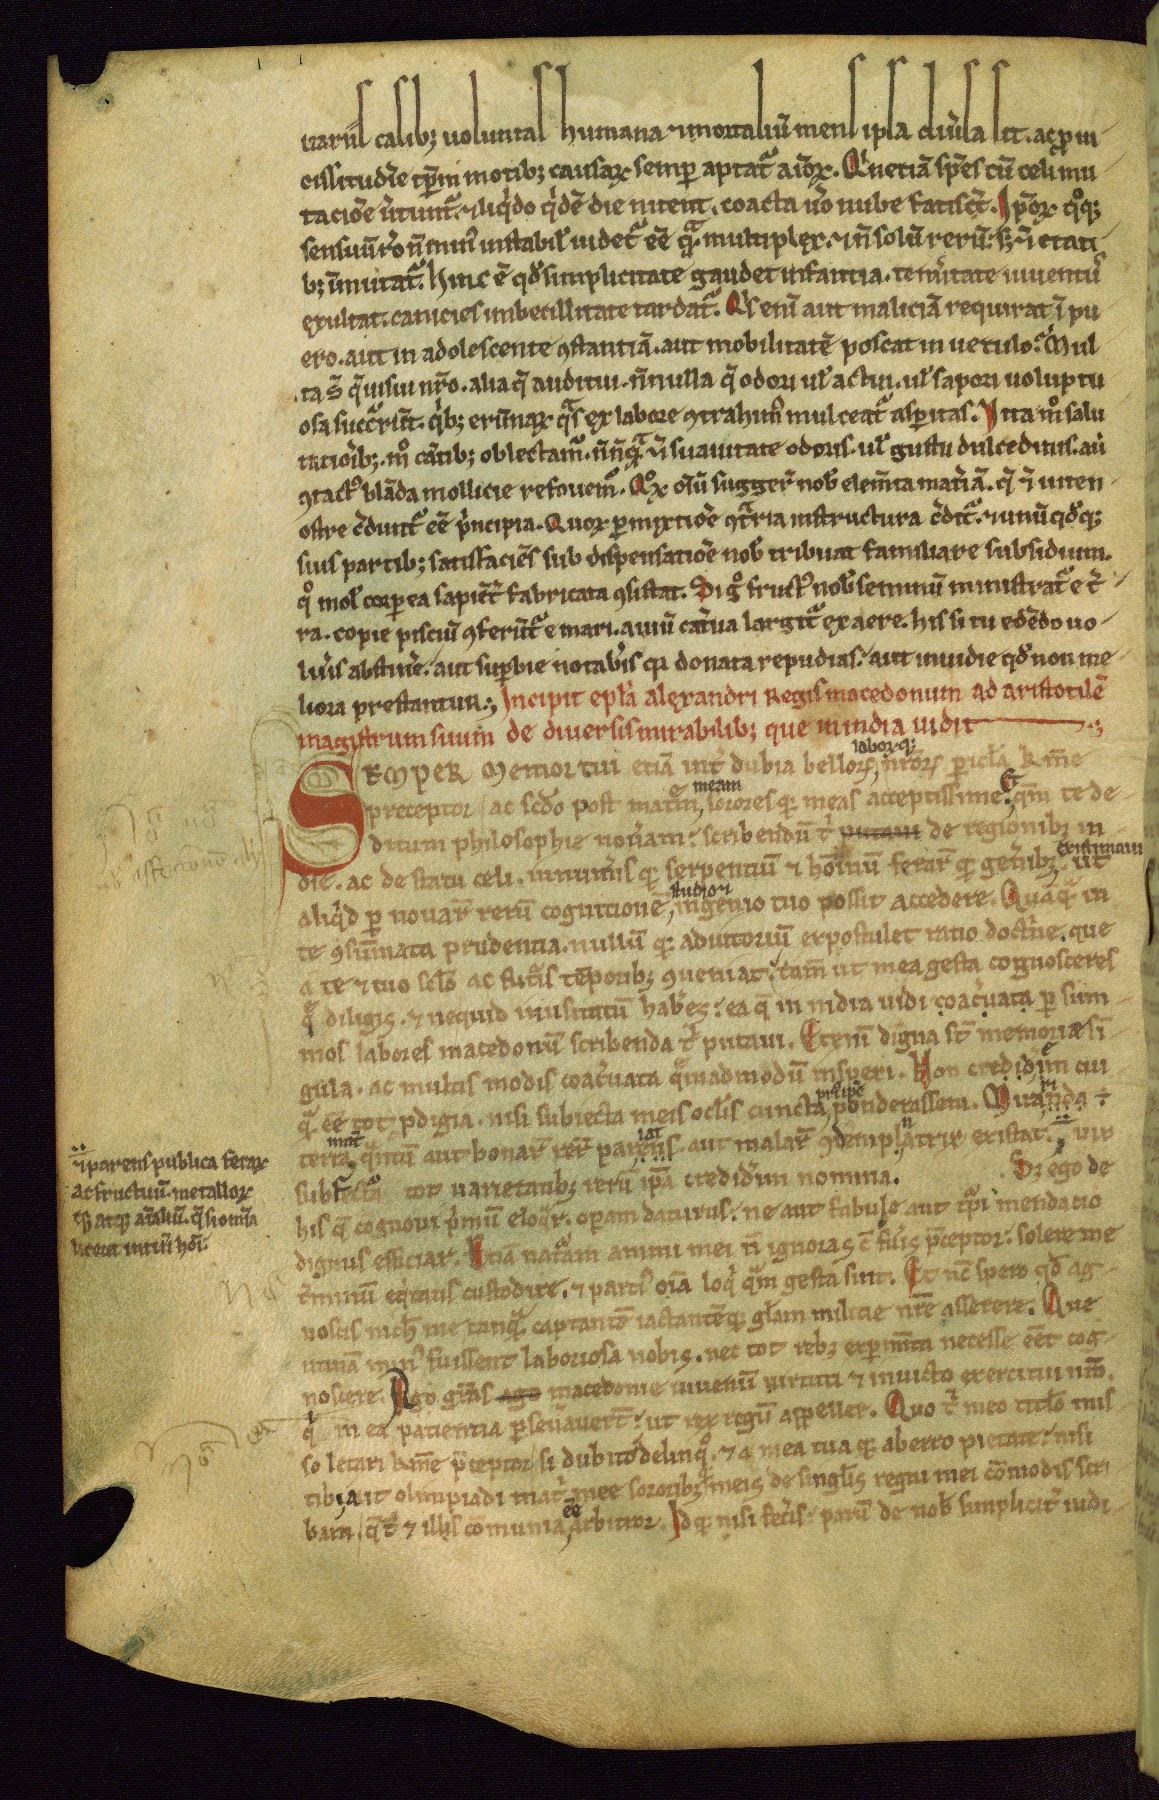 uariis casib; uoluntas humana ⁊ mortaliū mens ipsa diu͛sa sit. ac p̱ ui
cissitudīe tp̄m motib; causaꝝ semp̱ aptat᷑ aīoꝝ. Qn̄ etiā sp̄es cū celi mu
tacioē u͛tunt᷑. ⁊ liqͥdo qͥdē die nitent. coacta u͛o nube fatisc̄t. Ip̄oꝝ qͦq;
sensuū rō n̄ minꝰ instabil' uidet᷑ eē qͣ multiplex. ⁊ n̄ solū rerū: sꝫ ⁊ etati
b; īmutat᷑. Hinc ē qđ simplicitate gaudet infantia. tem͛itate iuuentꝰ
exultat. canicies imbecillitate tardat᷑. Qͥs enī aut maliciā requirat ī pu
ero. aut in adolescente ꝯstantiā. aut mobilitatē poscat in uetulo: Mul
ta s̄ q̄ uisui nr̄o. alia q̄ auditui. n̄nulla q̄ odori ul' actui. ul' sapori uoluptu
osa succr̄iūt. qͥb; erūnaꝝ qͣs ex labore ꝯtrahimꝰ mulceat᷑ asp̱itas. Ita m̊ salu
tatioib; m̊ cātib; oblectam᷑. n̄nūqͣ ⁊ suauitate odoris. ul' gustu dulcedinis. au
ꝯtactꝰ blāda mollicie refouem᷑. Qͦꝝ oīū sugger͛ nob' elem̄ta mat͛iā. q̄ ⁊ uiten
ostre c͛dunt᷑ eē p͛ncipia. Quoꝝ p̱mixtioē ꝯt͛ria instructura c͛dit᷑. ⁊ unū qđq;
suis partib; satisfaciēs sub dispensatioē nob' tribuat familiare subsidium.
qͦ mol' corp̱ea sapiēt͛ fabricata ꝯsistat. Dig̊ fructꝰ nob' seminū ministrat᷑ e t͛
ra. copie pisciū ꝯferūt᷑ e mari. auiū cat͛ua largit᷑ ex aere. his si tu edēdo uo
lu͛is abstin͛e. aut sup̱bie notab͛is q̄ donata repudias. aut inuidie qđ non me
liora prestantur.; Incipit ep̄la alexandri Regis macedonum ad aristotilē
magistrum suum de diuersis mirabilib; que in india uidit .;
laborq;
SEMPER Memor tui etiā int͛ dubia belloꝝ, nr̄oꝝ pericla. k̄me
meam Et
preceptor / ac scđo post matrē, sorores q; meas acceptissime. qm̄ te de
ditum philosophie nou͛am: scribendū t' putaui de regionib; in
existimaui
die. ac de statu celi. innum͛is q; serpentiū ⁊ hoīnū ferar̄ q; gen͛ib;. ut
studio ⁊
aliqͥd p̱ nouar̄ rerū cognitionē, ingenio tuo possit accedere. Quāqͣ in
te ꝯsūmata prudentia. nullū q; adiutoriū expostulet ratio doctͥne. que
a te ⁊ tuo sclo ac fut͛is tēporib; ꝯueniat: tam̄ ut mea gesta cognosceres
qͣ diligis. ⁊ nequid inusitatū hab͛es: ea q̄ in india uidi coac͛uata p̱ sum
mos labores macedonū scribenda t' putaui. Etenī digna st̄ memoria sī
gula. ac multis modis coac͛uata quēadmodū insperi. Non credidim᷑ cui
p͛us ip̄e
qͣ eē tot p̱digia. nisi subiecta meis oclis cuncta, ponderassem. Miranda ē
mat͛
terra, qͣntū aut bonar̄ rer̄ pariens. aut malar̄ ꝯdemplatrix existat. ux
subiecta tot uarietatib; rerū ip̄a credid͛im nomina. Sꝫ ego de
his q̄ cognoui p͛mū eloqͣr. op̱am daturus: ne aut fabule aut tͥpi mendatio
dignus efficiar. Etiā nat᷑am animi mei n̄ ignoras c̄ fu͛is p̄ceptor: solere me
t͛minū eqͥtatis custodire. ⁊ partꝰ oīa loqͥ qͣm gesta sint. Et nc̄ spero qđ ag
noscis nich' me tanqͣ captantē iactantēq; gl'am milicie nr̄e asserere. Que
utinā minꝰ fuissent laboriosa nobis. nec tot reb; exp̱im̄ta necesse eēt cog
noscere. Ago grās ago macedonie iuuenū uirtuti ⁊ inuicto exercitui nr̄o.
qͥ in ea patientia p̱seu͛auert̄: ut rex regū appeller. Quo t' meo titlo mis
so letari k̄me p̄ceptor si dubito delinqͦ. ⁊ a mea tua q; aberro pietate: nisi
tibi, aut olimpiadi mat͛ mee sororib; meis de singlis regni mei cōmodis scri
eē
bam / q̄ t' ⁊ illis cōmunia, arbitror. Id q; nisi fec͛is: parū de nob' simplicit͛ iudi
⁊ parens publica feraꝝ
ac fructuū. metalloꝝ
atq; aīaliū. q̄ si omīa